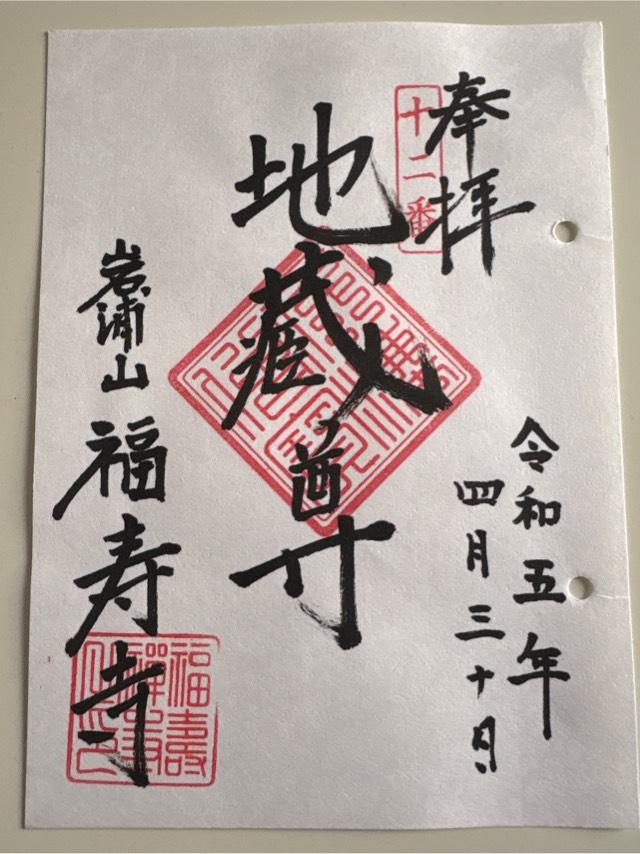 奉拝
十二番
令和五年
四月三十日
地蔵尊
岩浦山 福寿寺
福壽
禅寺